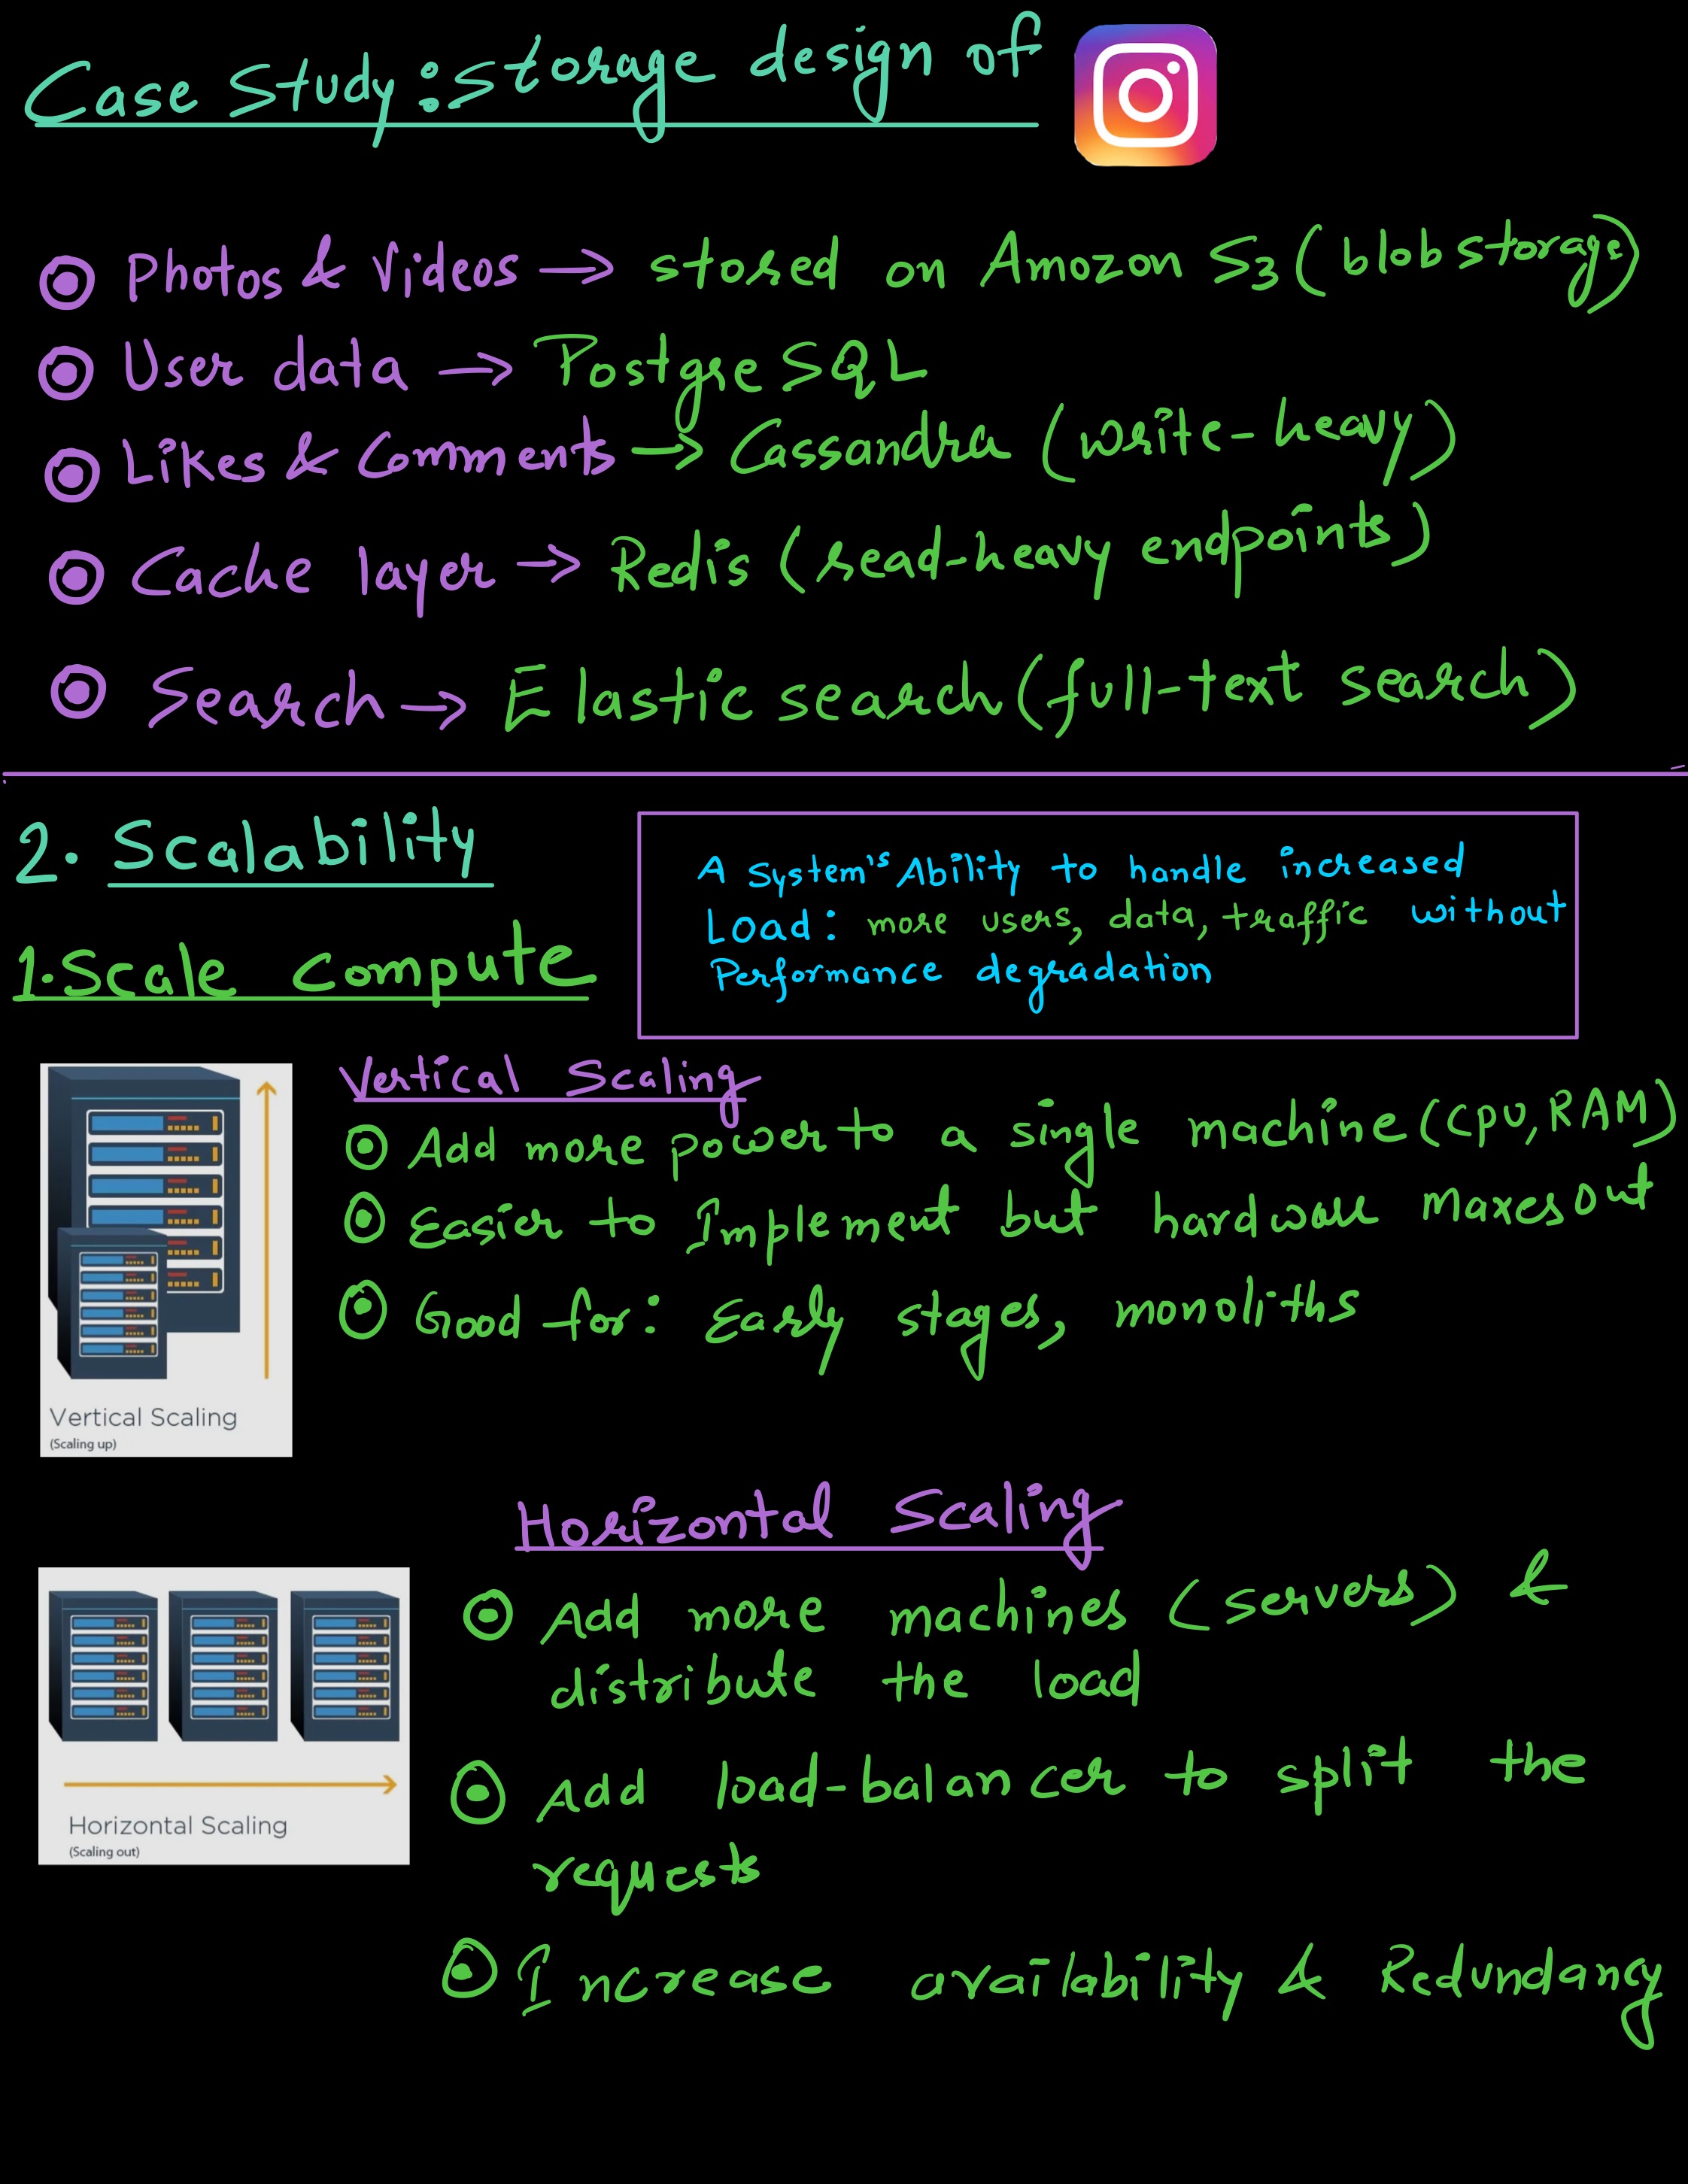 Case Study: Storage design of
Photos & Videos → stored on Amozon S3 (blob storage)
User data → PostgreSQL
Likes & Comments → Cassandra (write-heavy)
Cache layer → Redis (read-heavy endpoints)
Search → Elastic search (full-text search)
2. Scalability
A System's Ability to handle increased
Load: more users, data, traffic without
Performance degradation
1. Scale Compute
Vertical Scaling
Add more power to a single machine (CPU, RAM)
Easier to Implement but hardware Maxes out
Good for: Early stages, monoliths
Vertical Scaling
(Scaling up)
Horizontal Scaling
Add more machines (servers) &
distribute the load
Add load-balancer to split the
requests
Horizontal Scaling
(Scaling out)
Increase availability & Redundancy